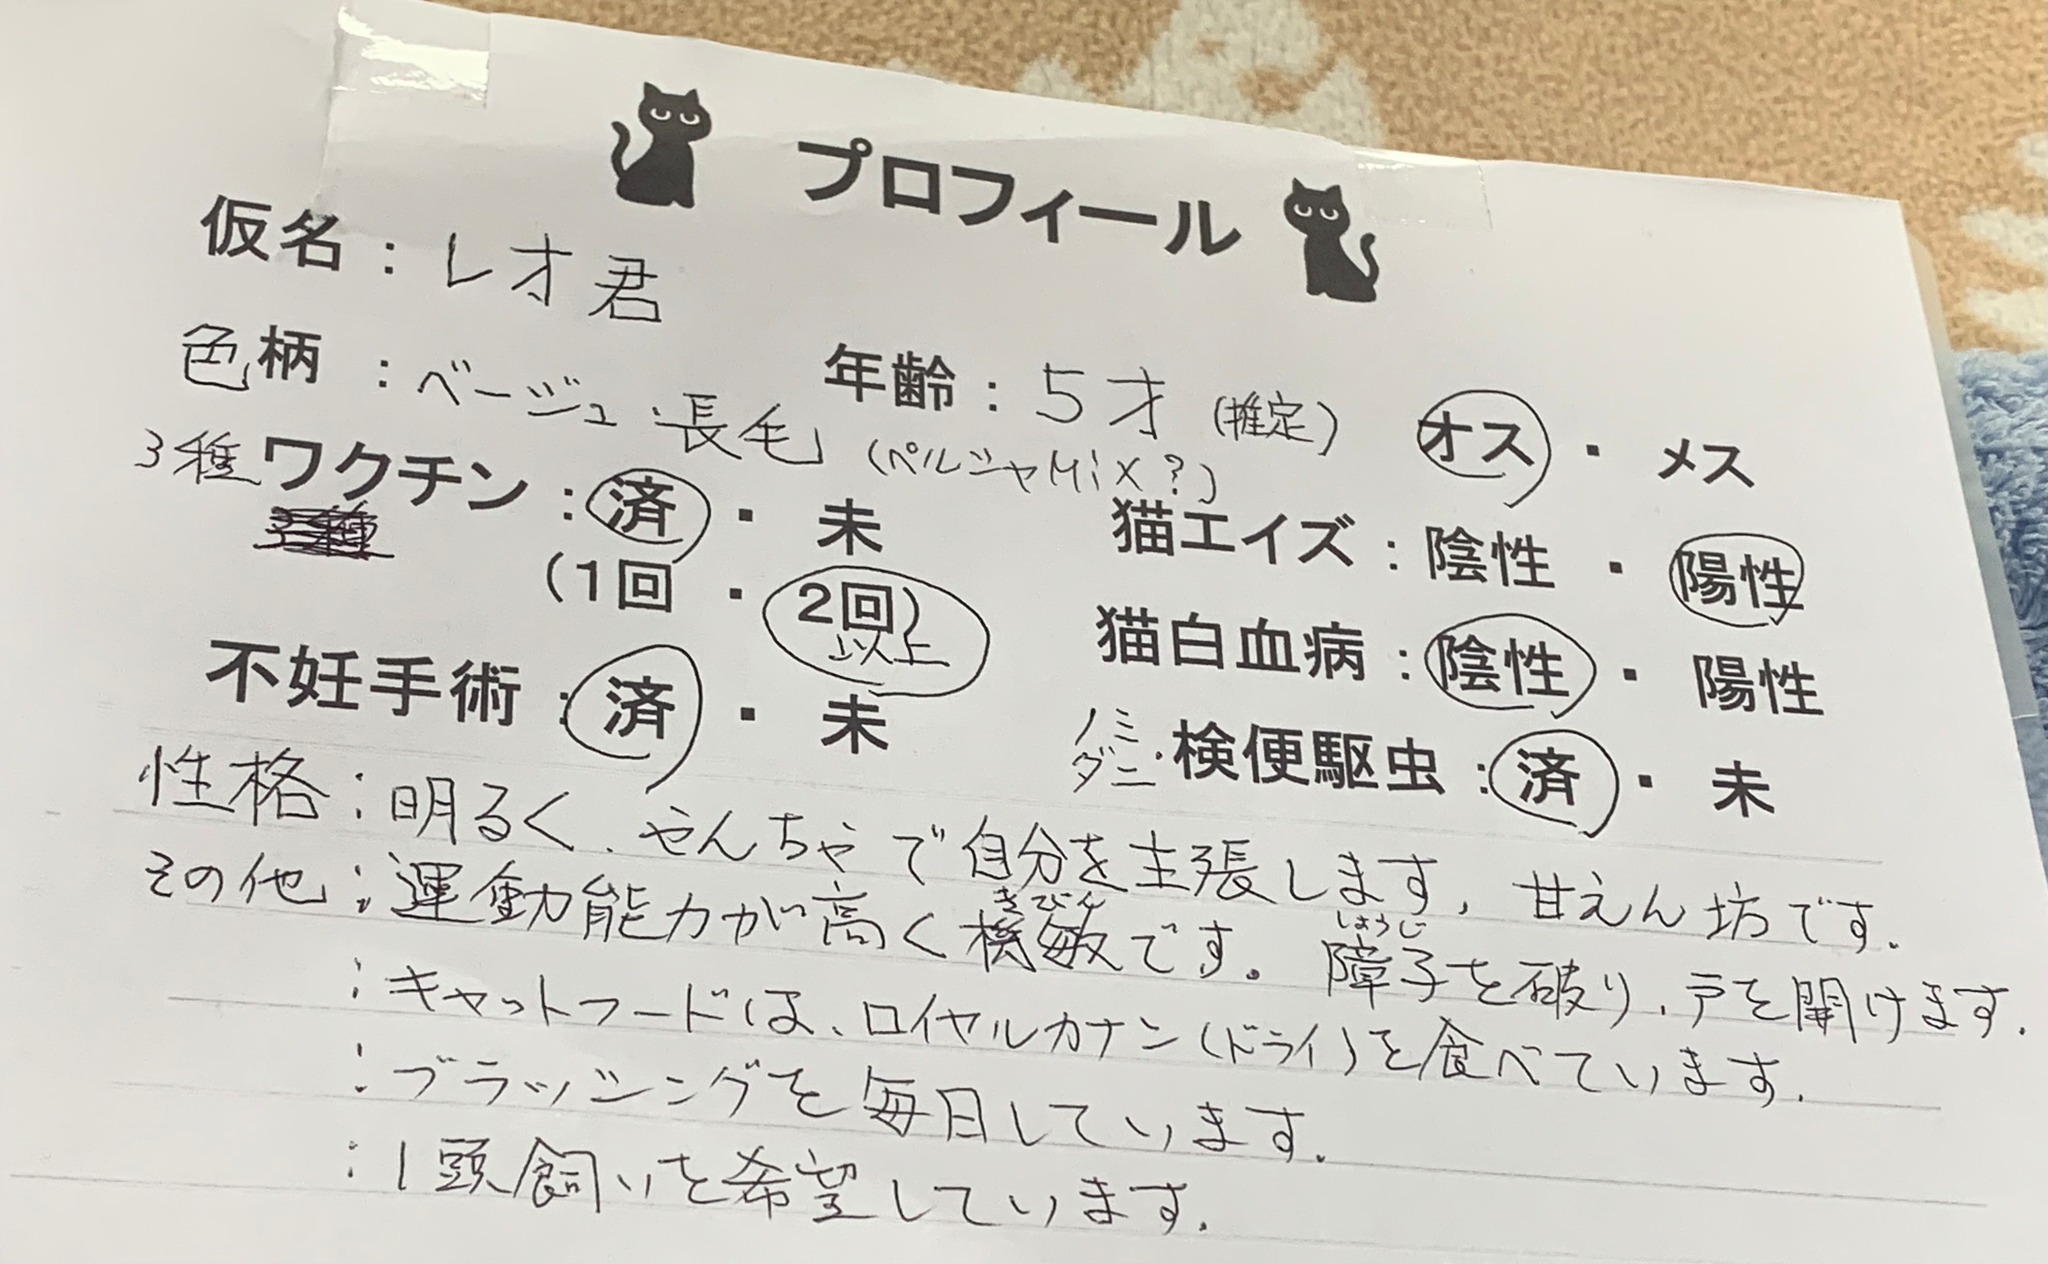 プロフィール
仮名：レオ君
色柄：ベージュ・長毛（ペルシャMix？）
年齢：5才（推定） オス・メス
3種ワクチン：済・未
（1回・2回）以上
猫エイズ：陰性・陽性
猫白血病：陰性・陽性
不妊手術：済・未
ノミ・ダニ・検便駆虫：済・未
性格：明るく、やんちゃで自分を主張します、甘えん坊です。
その他：運動能力が高く機敏です。障子を破り、戸を開けます。
きびん しょうじ
：キャットフードは、ロイヤルカナン（ドライ）を食べています。
：ブラッシングを毎日しています。
：1頭飼いを希望しています。